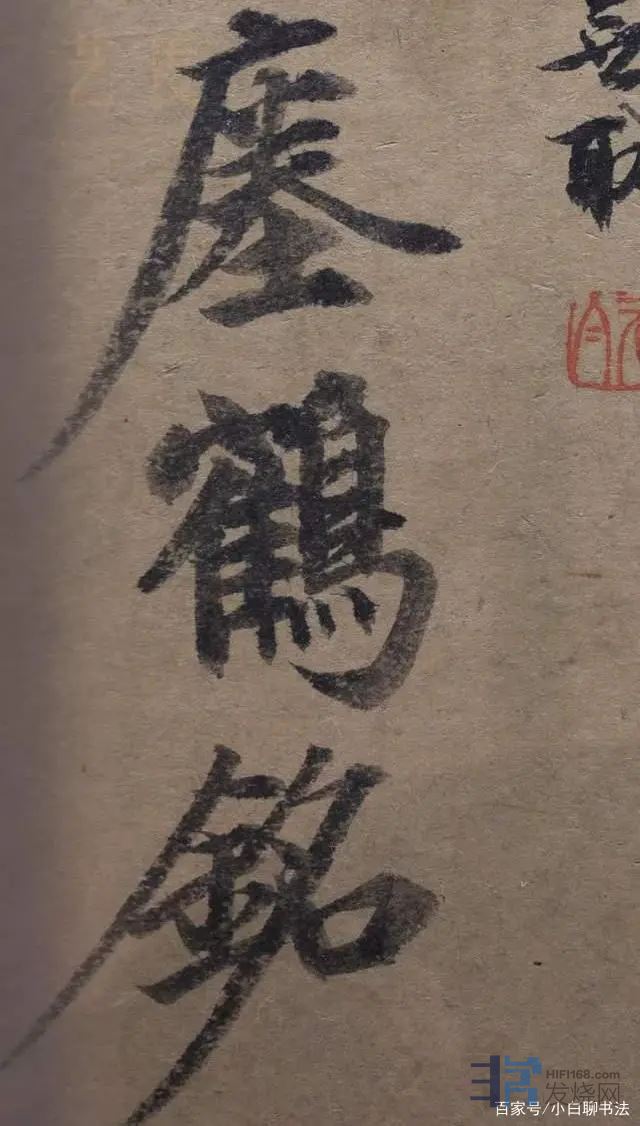 瘞鶴銘
HIFI168.com
发烧网
百家号/小白聊书法